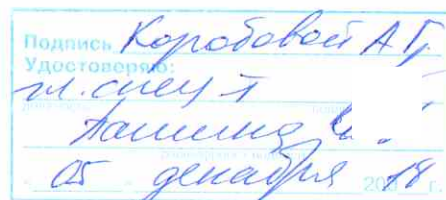 Подпись Коробовой А.Г.
Удостоверяю:
гл. спец-т
05 декабря 2018 г.